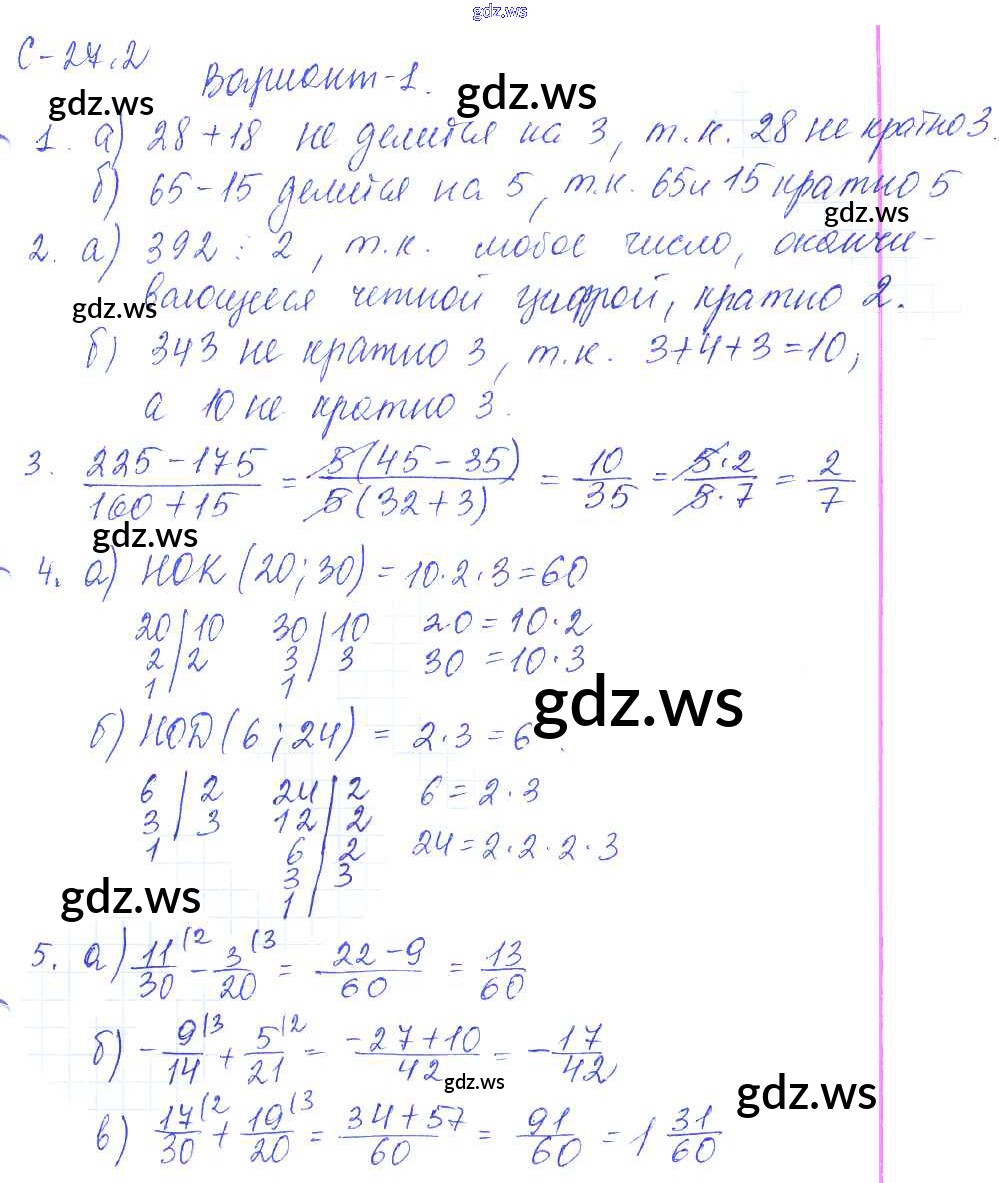 gdz.ws
С-27.2
gdz.ws Вариант-1. gdz.ws
1. а) 28+18 не делится на 3, т.к. 28 не кратно 3.
б) 65-15 делится на 5, т.к. 65 и 15 кратно 5
gdz.ws
2. а) 392 ⋮ 2, т.к. любое число, оканчи-
вающееся четной цифрой, кратно 2.
gdz.ws
б) 343 не кратно 3, т.к. 3+4+3=10,
а 10 не кратно 3.
3. (225-175)/(160+15) = 5(45-35)/5(32+3) = 10/35 = 5·2/5·7 = 2/7
gdz.ws
4. а) НОК (20; 30) = 10·2·3=60
20|10 30|10 20=10·2
2|2 3|3 30=10·3
1| 1|
gdz.ws
б) НОД (6; 24) = 2·3=6.
6|2 24|2 6=2·3
3|3 12|2
1 6|2 24=2·2·2·3
3|3
1|
gdz.ws
5. а) 11/30 (2 - 3/20 (3 = (22-9)/60 = 13/60
б) -9/14 (3 + 5/21 (2 = (-27+10)/42 = -17/42
gdz.ws
gdz.ws
в) 17/30 (2 + 19/20 (3 = (34+57)/60 = 91/60 = 1 31/60